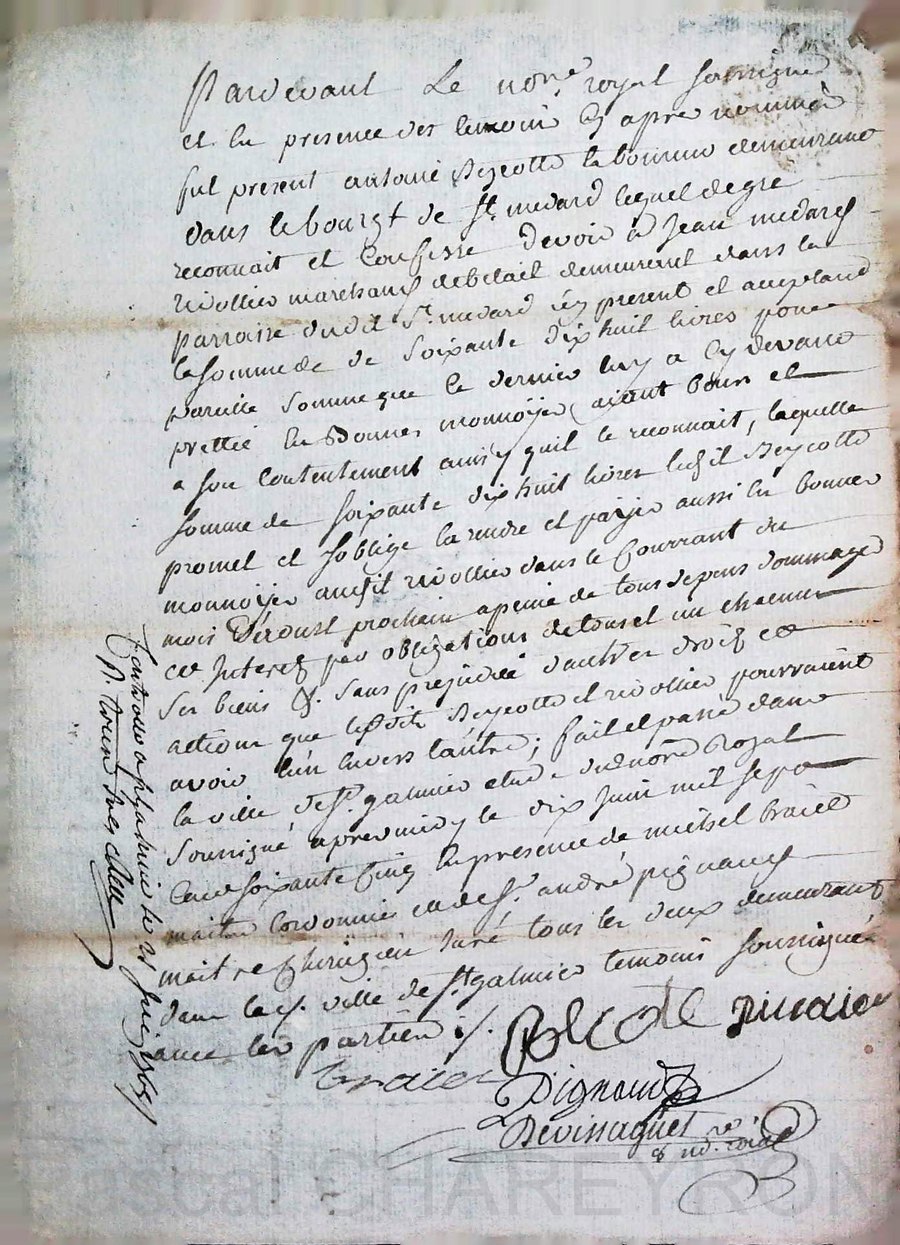 Pardevant Le no.re royal soussigné
et En presence des temoin Cy apre nommés
fut present antoine Peycotte laboureur demeurant
dans le bourgt de St. medard lequel de gre
reconnait et Confesse devoir a Jean medard
rivollier marchand de betail demeurent dans la
parroisse dudit St. medard icy present et acceptant
la somme de de soixante dixhuit livres pour
pareille somme que ce dernier luy a Cy devant
prettée En Bonnes monnoyes, ayant cours et
a son Contentement ainsy quil le reconnait, laquelle
somme de soixante dixhuit livres ledit Peycotte
promet et soblige la rendre et payer aussi En bonnes
monnoyes audit rivollier dans le Courrant du
mois prochain apeine de tous depens dommage
et Interets par obligations de tous et un chacuns
ses biens &. sans prejudice dauthres droits et
actions que lesdits Peycotte et rivollier pourraient
avoir l'un Envers l'autre; fait et passé dans
la ville de St. galmier etude dud notre Royal
soussigné apres midy le dix Juin mil sept
Cent soixante Cinq En presence de michel
maitre Cordonnier et de Sr. andré pignaud
maitre Chirugien Juré tous les deux demeurants
dans la d. ville de St galmier temoins soussignés
avec les parties ./.
Pignaud
Devissaguet
no.re roial
a st galmier le 21 Juin 1765
R. treize sols